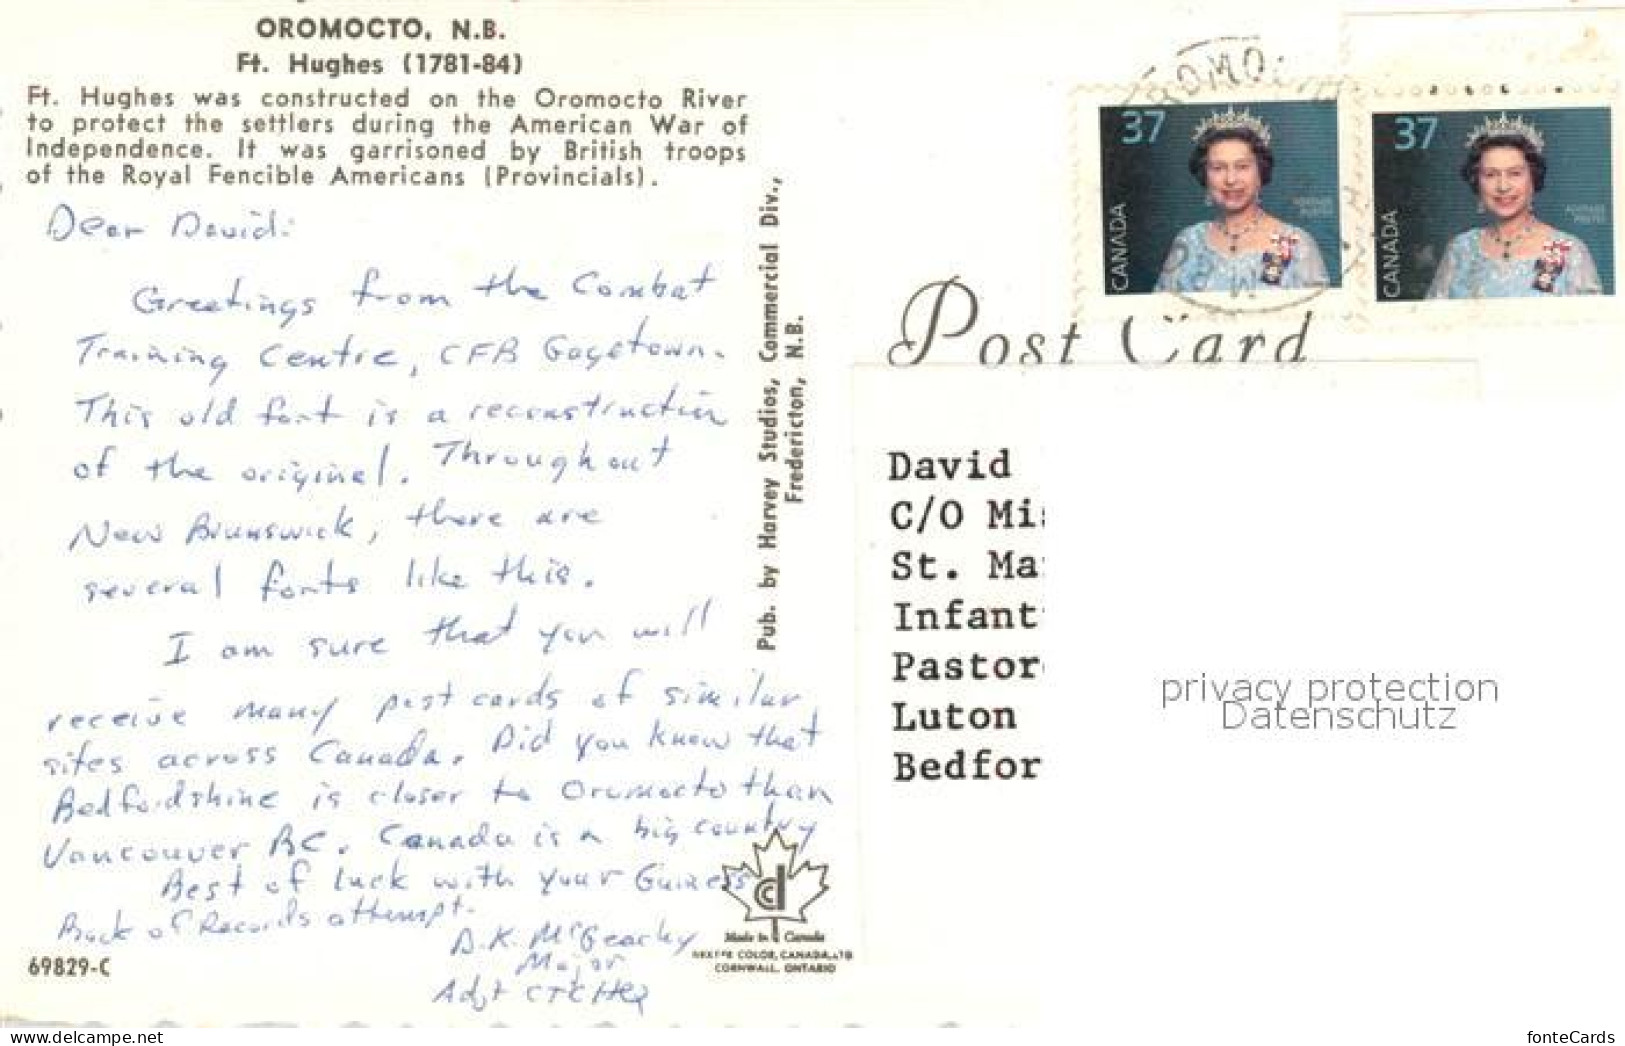 OROMOCTO, N.B.
Ft. Hughes (1781-84)
Ft. Hughes was constructed on the Oromocto River
to protect the settlers during the American War of
Independence. It was garrisoned by British troops
of the Royal Fencible Americans (Provincials).
Dear David:
Greetings from the Combat
Training Centre, CFB Gagetown.
This old fort is a reconstruction
of the original. Throughout
New Brunswick, there are
several forts like this.
I am sure that you will
receive many post cards of similar
sites across Canada. Did you know that
Bedfordshire is closer to Oromocto than
Vancouver BC. Canada is a big country
Best of luck with your Guiness
Book of Records attempt.
D.K. McGeachy
Major
Adjt CTC HQ
69829-C
Pub. by Harvey Studios, Commercial Div.,
Fredericton, N.B.
Made in Canada
COLOR, CANADA, LTD
CORNWALL, ONTARIO
37
CANADA
POSTAGE
POSTES
37
CANADA
POSTAGE
POSTES
Post Card
David
C/O Mis
St. Ma
Infant
Pastor
Luton
Bedfor
privacy protection
Datenschutz
the-west.net
fonteCards